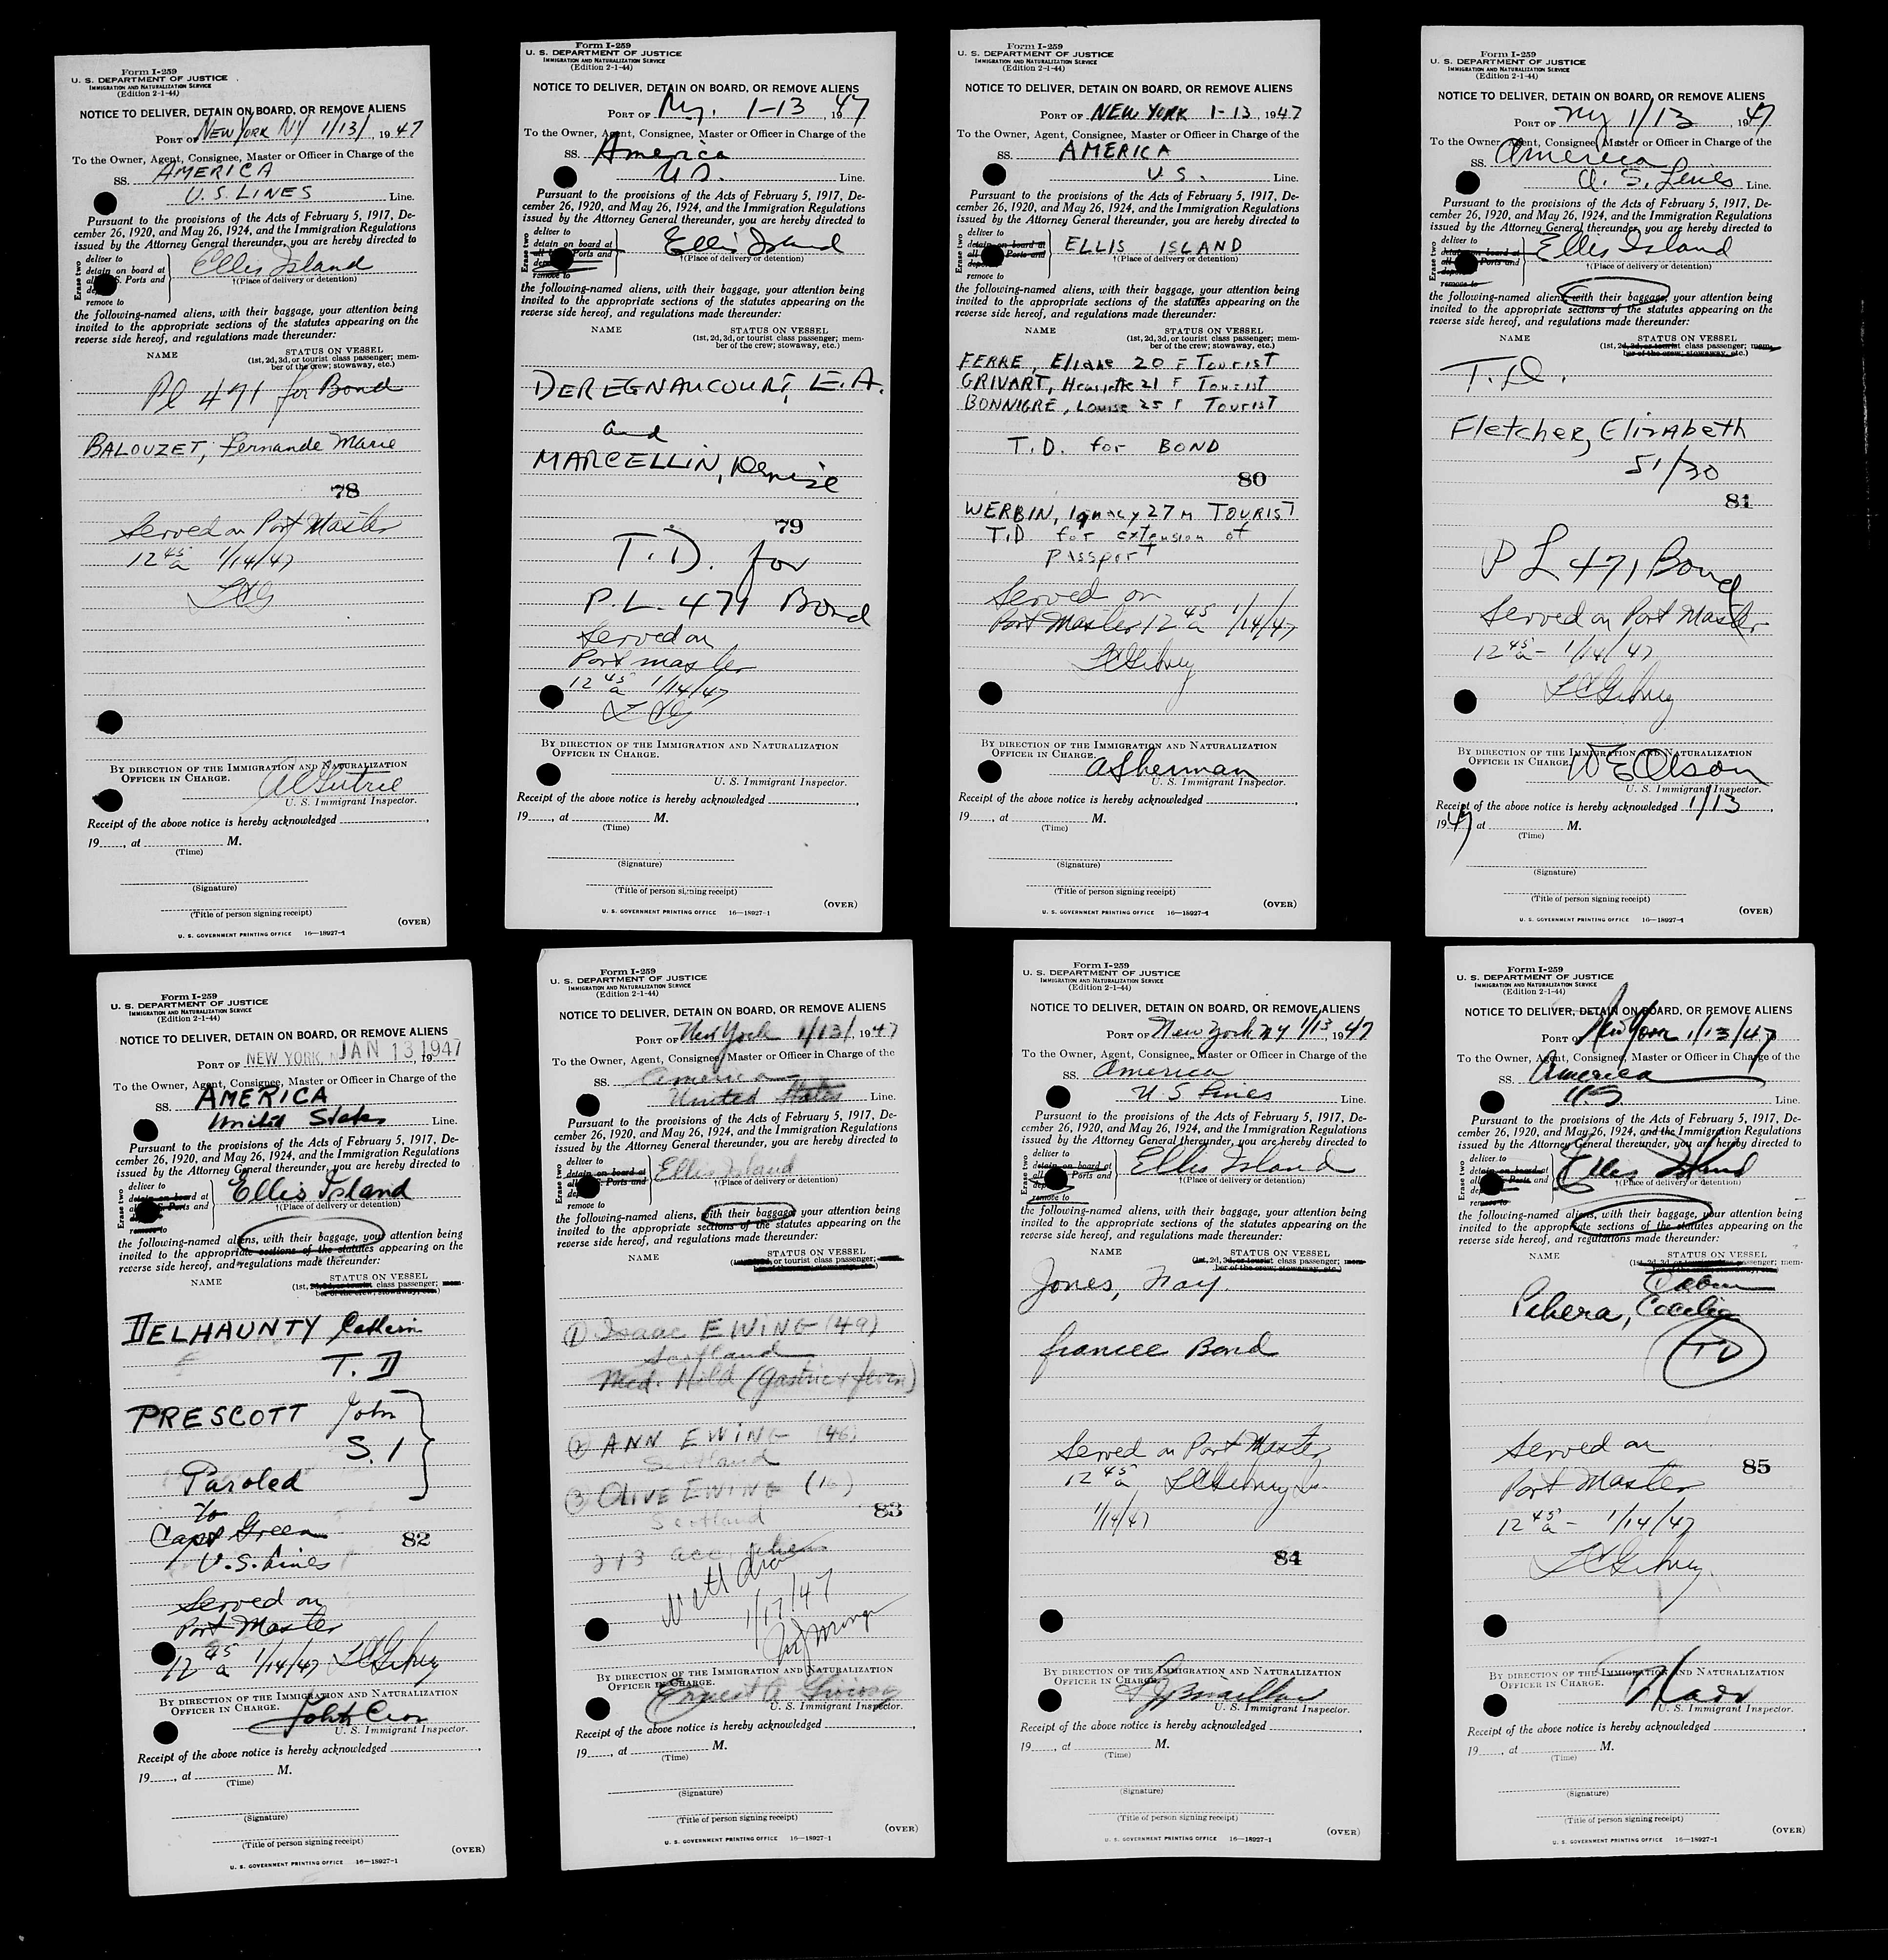 Form I-259
U. S. DEPARTMENT OF JUSTICE
IMMIGRATION AND NATURALIZATION SERVICE
(Edition 2-1-44)
NOTICE TO DELIVER, DETAIN ON BOARD, OR REMOVE ALIENS
PORT OF NEW YORK NY 1/13/, 1947
To the Owner, Agent, Consignee, Master or Officer in Charge of the
SS. AMERICA
U.S. LINES Line.
Pursuant to the provisions of the Acts of February 5, 1917, De-
cember 26, 1920, and May 26, 1924, and the Immigration Regulations
issued by the Attorney General thereunder, you are hereby directed to
Erase two
deliver to
detain on board at
all S. Ports and
remove to
Ellis Island
†(Place of delivery or detention)
the following-named aliens, with their baggage, your attention being
invited to the appropriate sections of the statutes appearing on the
reverse side hereof, and regulations made thereunder:
NAME STATUS ON VESSEL
(1st, 2d, 3d, or tourist class passenger; mem-
ber of the crew; stowaway, etc.)
Pl 471 for Bond
BALOUZET, Fernande Marie
78
Served on Port Master
12 45 a 1/14/47
BY DIRECTION OF THE IMMIGRATION AND NATURALIZATION
OFFICER IN CHARGE.
U. S. Immigrant Inspector.
Receipt of the above notice is hereby acknowledged
19, at M.
(Time)
(Signature)
(Title of person signing receipt)
(OVER)
U. S. GOVERNMENT PRINTING OFFICE 16—18927-1
Form I-259
U. S. DEPARTMENT OF JUSTICE
IMMIGRATION AND NATURALIZATION SERVICE
(Edition 2-1-44)
NOTICE TO DELIVER, DETAIN ON BOARD, OR REMOVE ALIENS
PORT OF Ny. 1-13, 1947
To the Owner, Agent, Consignee, Master or Officer in Charge of the
SS. America
U.S. Line.
Pursuant to the provisions of the Acts of February 5, 1917, De-
cember 26, 1920, and May 26, 1924, and the Immigration Regulations
issued by the Attorney General thereunder, you are hereby directed to
Erase two
deliver to
detain on board at
all Ports and
remove to
Ellis Island
†(Place of delivery or detention)
the following-named aliens, with their baggage, your attention being
invited to the appropriate sections of the statutes appearing on the
reverse side hereof, and regulations made thereunder:
NAME STATUS ON VESSEL
(1st, 2d, 3d, or tourist class passenger; mem-
ber of the crew; stowaway, etc.)
DEREGNAUCOURT, E.A.
and
MARCELLIN, Denise
79
T.D. for
P.L. 471 Bond
Served on
Port master
12 45 a 1/14/47
BY DIRECTION OF THE IMMIGRATION AND NATURALIZATION
OFFICER IN CHARGE.
U. S. Immigrant Inspector.
Receipt of the above notice is hereby acknowledged
19, at M.
(Time)
(Signature)
(Title of person signing receipt)
(OVER)
U. S. GOVERNMENT PRINTING OFFICE 16—18927-1
Form I-259
U. S. DEPARTMENT OF JUSTICE
IMMIGRATION AND NATURALIZATION SERVICE
(Edition 2-1-44)
NOTICE TO DELIVER, DETAIN ON BOARD, OR REMOVE ALIENS
PORT OF NEW YORK 1-13 1947
To the Owner, Agent, Consignee, Master or Officer in Charge of the
SS. AMERICA
U S. Line.
Pursuant to the provisions of the Acts of February 5, 1917, De-
cember 26, 1920, and May 26, 1924, and the Immigration Regulations
issued by the Attorney General thereunder, you are hereby directed to
Erase two
deliver to
detain on board at
all Ports and
remove to
ELLIS ISLAND
†(Place of delivery or detention)
the following-named aliens, with their baggage, your attention being
invited to the appropriate sections of the statutes appearing on the
reverse side hereof, and regulations made thereunder:
NAME STATUS ON VESSEL
(1st, 2d, 3d, or tourist class passenger; mem-
ber of the crew; stowaway, etc.)
FERRE, Eliane 20 F Tourist
GRIVART, Henriette 21 F Tourist
BONNIGRE, Louise 25 F Tourist
T.D. for BOND
80
WERBIN, Ignacy 27 M TOURIST
T.D for extension of
passport
Served on
Port Master 12 45 a 1/14/47
LCGibney
BY DIRECTION OF THE IMMIGRATION AND NATURALIZATION
OFFICER IN CHARGE.
ASherman
U. S. Immigrant Inspector.
Receipt of the above notice is hereby acknowledged
19, at M.
(Time)
(Signature)
(Title of person signing receipt)
(OVER)
U. S. GOVERNMENT PRINTING OFFICE 16—18927-1
Form I-259
U. S. DEPARTMENT OF JUSTICE
IMMIGRATION AND NATURALIZATION SERVICE
(Edition 2-1-44)
NOTICE TO DELIVER, DETAIN ON BOARD, OR REMOVE ALIENS
PORT OF Ny 1/13, 1947
To the Owner, Agent, Consignee, Master or Officer in Charge of the
SS. America
U. S. Lines Line.
Pursuant to the provisions of the Acts of February 5, 1917, De-
cember 26, 1920, and May 26, 1924, and the Immigration Regulations
issued by the Attorney General thereunder, you are hereby directed to
Erase two
deliver to
detain on board at
all Ports and
remove to
Ellis Island
†(Place of delivery or detention)
the following-named aliens, with their baggage, your attention being
invited to the appropriate sections of the statutes appearing on the
reverse side hereof, and regulations made thereunder:
NAME STATUS ON VESSEL
(1st, 2d, 3d, or tourist class passenger; mem-
ber of the crew; stowaway, etc.)
T.D.
Fletcher, Elizabeth
51/30
81
P L 471 Bond
Served on Port Master
12 45 a - 1/14/47
LCGibney
BY DIRECTION OF THE IMMIGRATION AND NATURALIZATION
OFFICER IN CHARGE.
W E Olson
U. S. Immigrant Inspector.
Receipt of the above notice is hereby acknowledged 1/13
1947 at M.
(Time)
(Signature)
(Title of person signing receipt)
(OVER)
U. S. GOVERNMENT PRINTING OFFICE 16—18927-1
Form I-259
U. S. DEPARTMENT OF JUSTICE
IMMIGRATION AND NATURALIZATION SERVICE
(Edition 2-1-44)
NOTICE TO DELIVER, DETAIN ON BOARD, OR REMOVE ALIENS
PORT OF NEW YORK, N JAN 13 1947
To the Owner, Agent, Consignee, Master or Officer in Charge of the
SS. AMERICA
United States Line.
Pursuant to the provisions of the Acts of February 5, 1917, De-
cember 26, 1920, and May 26, 1924, and the Immigration Regulations
issued by the Attorney General thereunder, you are hereby directed to
Erase two
deliver to
detain on board at
all S. Ports and
remove to
Ellis Island
†(Place of delivery or detention)
the following-named aliens, with their baggage, your attention being
invited to the appropriate sections of the statutes appearing on the
reverse side hereof, and regulations made thereunder:
NAME STATUS ON VESSEL
(1st, 2d, 3d, or tourist class passenger; mem-
ber of the crew; stowaway, etc.)
DELHAUNTY
T. D
PRESCOTT John
S. I
Paroled
to
Capt Green
82
U.S. Lines
Served on
Port Master
12 45 a 1/14/47 LCGibney
BY DIRECTION OF THE IMMIGRATION AND NATURALIZATION
OFFICER IN CHARGE.
U. S. Immigrant Inspector.
Receipt of the above notice is hereby acknowledged
19, at M.
(Time)
(Signature)
(Title of person signing receipt)
(OVER)
U. S. GOVERNMENT PRINTING OFFICE 16—18927-1
Form I-259
U. S. DEPARTMENT OF JUSTICE
IMMIGRATION AND NATURALIZATION SERVICE
(Edition 2-1-44)
NOTICE TO DELIVER, DETAIN ON BOARD, OR REMOVE ALIENS
PORT OF New York 1/13/, 1947
To the Owner, Agent, Consignee, Master or Officer in Charge of the
SS. America
United States Line.
Pursuant to the provisions of the Acts of February 5, 1917, De-
cember 26, 1920, and May 26, 1924, and the Immigration Regulations
issued by the Attorney General thereunder, you are hereby directed to
Erase two
deliver to
detain on board at
all S. Ports and
remove to
Ellis Island
†(Place of delivery or detention)
the following-named aliens, with their baggage, your attention being
invited to the appropriate sections of the statutes appearing on the
reverse side hereof, and regulations made thereunder:
NAME STATUS ON VESSEL
or tourist class passenger;
ber of the crew; stowaway, etc.)
① Isaac EWING (49)
Scotland
Med. Hold
② ANN EWING (46)
Scotland
③ OLIVE EWING (16)
83
Scotland
2 & 3 acc. alien
1/17/47
BY DIRECTION OF THE IMMIGRATION AND NATURALIZATION
OFFICER IN CHARGE.
U. S. Immigrant Inspector.
Receipt of the above notice is hereby acknowledged
19, at M.
(Time)
(Signature)
(Title of person signing receipt)
(OVER)
U. S. GOVERNMENT PRINTING OFFICE 16—18927-1
Form I-259
U. S. DEPARTMENT OF JUSTICE
IMMIGRATION AND NATURALIZATION SERVICE
(Edition 2-1-44)
NOTICE TO DELIVER, DETAIN ON BOARD, OR REMOVE ALIENS
PORT OF New York NY 1/13, 1947
To the Owner, Agent, Consignee, Master or Officer in Charge of the
SS. America
U S Lines Line.
Pursuant to the provisions of the Acts of February 5, 1917, De-
cember 26, 1920, and May 26, 1924, and the Immigration Regulations
issued by the Attorney General thereunder, you are hereby directed to
Erase two
deliver to
detain on board at
all Ports and
remove to
Ellis Island
†(Place of delivery or detention)
the following-named aliens, with their baggage, your attention being
invited to the appropriate sections of the statutes appearing on the
reverse side hereof, and regulations made thereunder:
NAME STATUS ON VESSEL
(1st, 2d, 3d, or tourist class passenger; mem-
ber of the crew; stowaway, etc.)
Jones, Fay.
fiancee Bond
Served on Port Master
12 45 a LCGibney
1/14/47
84
BY DIRECTION OF THE IMMIGRATION AND NATURALIZATION
OFFICER IN CHARGE.
U. S. Immigrant Inspector.
Receipt of the above notice is hereby acknowledged
19, at M.
(Time)
(Signature)
(Title of person signing receipt)
(OVER)
U. S. GOVERNMENT PRINTING OFFICE 16—18927-1
Form I-259
U. S. DEPARTMENT OF JUSTICE
IMMIGRATION AND NATURALIZATION SERVICE
(Edition 2-1-44)
NOTICE TO DELIVER, DETAIN ON BOARD, OR REMOVE ALIENS
PORT OF New York 1/13/47
To the Owner, Agent, Consignee, Master or Officer in Charge of the
SS. America
US Line.
Pursuant to the provisions of the Acts of February 5, 1917, De-
cember 26, 1920, and May 26, 1924, and the Immigration Regulations
issued by the Attorney General thereunder, you are hereby directed to
Erase two
deliver to
detain on board at
all Ports and
remove to
Ellis Island
†(Place of delivery or detention)
the following-named aliens, with their baggage, your attention being
invited to the appropriate sections of the statutes appearing on the
reverse side hereof, and regulations made thereunder:
NAME STATUS ON VESSEL
(1st, 2d, 3d, or tourist class passenger; mem-
Cabin
Pehera, Cecelia
TD
Served on
85
Port Master
12 45 a - 1/14/47
LCGibney
BY DIRECTION OF THE IMMIGRATION AND NATURALIZATION
OFFICER IN CHARGE.
U. S. Immigrant Inspector.
Receipt of the above notice is hereby acknowledged
19, at M.
(Time)
(Signature)
(Title of person signing receipt)
(OVER)
U. S. GOVERNMENT PRINTING OFFICE 16—18927-1